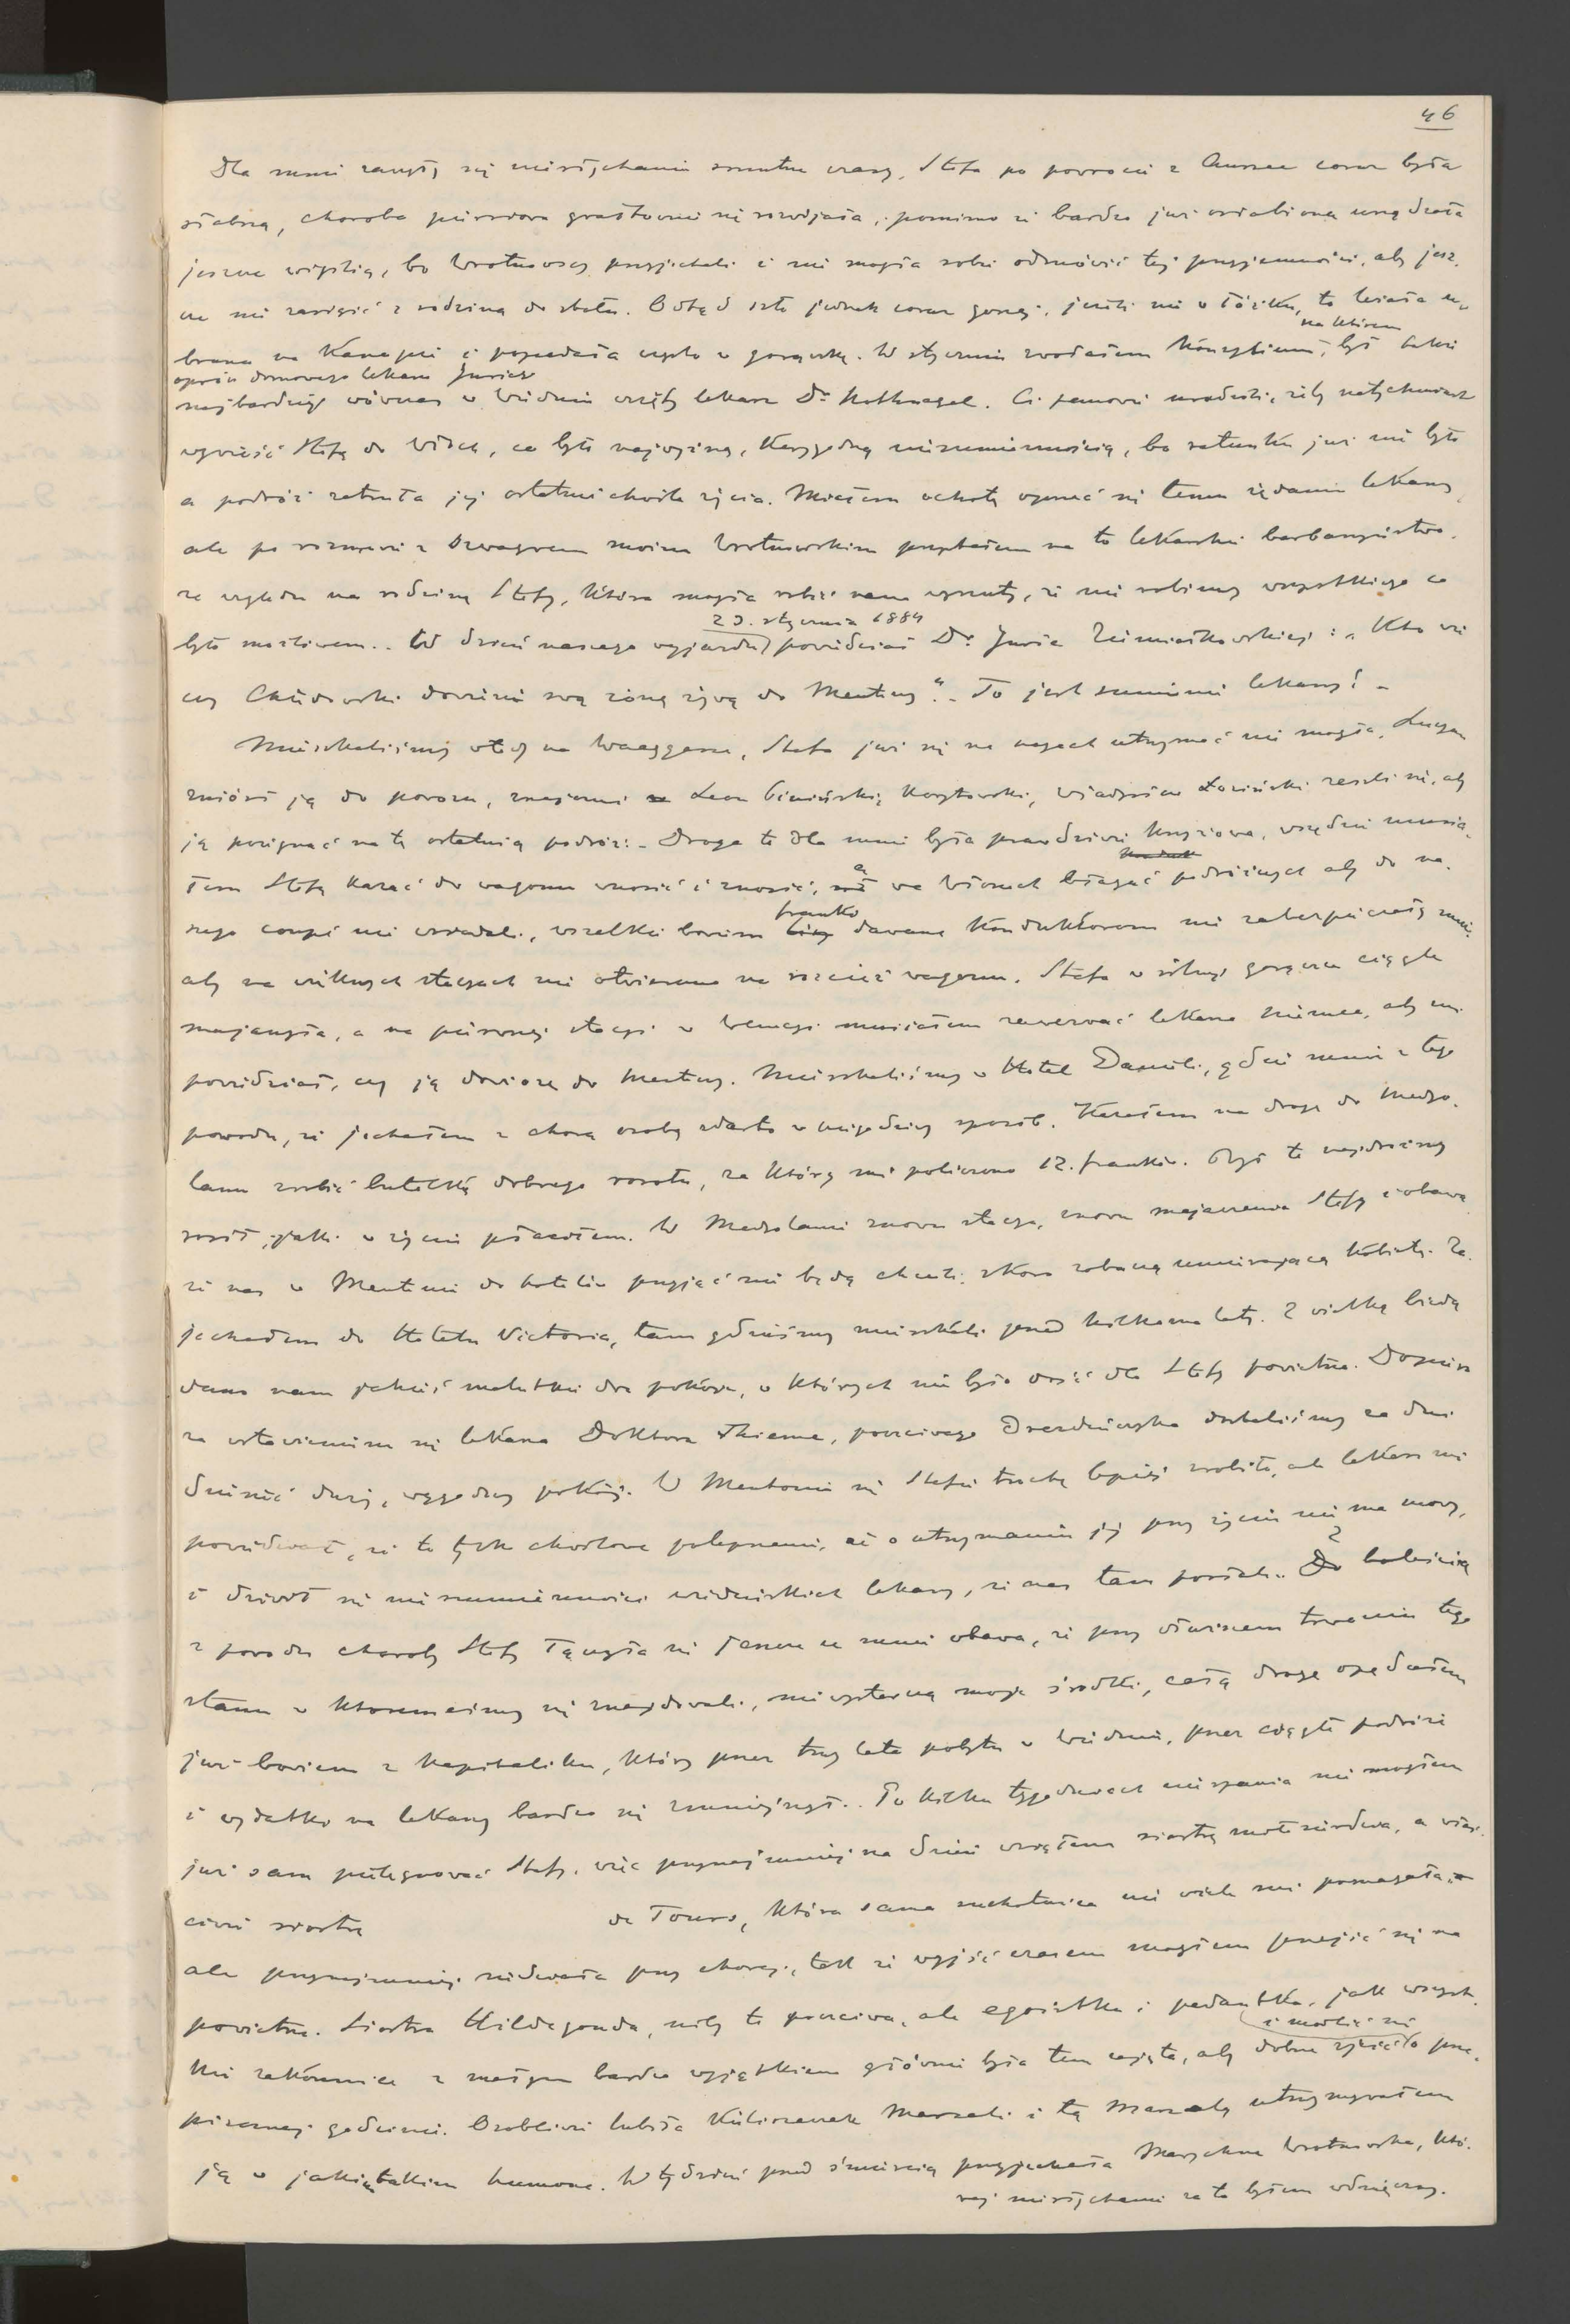 46
Dla mnie zaczęły się niesłychanie smutne czasy, Stefa po powrocie z Aussee coraz była
słabszą, choroba piersiowa gwałtownie się rozwijała, pomimo że bardzo już osłabiona urządzała
jeszcze wigilię, bo Wrotnowscy przyjechali i nie mogła sobie odmówić tej przyjemności, aby jesz-
cze nie zasiąść z rodziną do stołu. Odtąd szło jednak coraz gorzej, jeżeli nie w łóżku, to leżała u-
brana na kanapie i popadała często w gorączkę. W styczniu zwołałem konsylium, na którem był także
oprócz domowego lekarza Juriego
najbardziej wówczas w Wiedniu wzięty lekarz Dr Nothnagel. Ci panowie uradzili, żeby natychmiast
wywieźć Stefę do Włoch, co było najwyższą, karygodną niesumiennością, bo ratunku już nie było
a podróż zatruła jej ostatnie chwile życia. Miałem ochotę oprzeć się temu żądaniu lekarzy,
ale po rozmowie z szwagrem moim Wrotnowskim przystałem na to lekarskie barbarzyństwo,
ze względu na rodzinę Stefy, która mogła robić nam wyrzuty, że nie robimy wszystkiego co
było możliwem.. W dzień naszego wyjazdu 23. stycznia 1884 powiedział Dr Jurie Ziemiałkowskiej: „Kto wie
czy Chłędowski dowiezie swą żonę żywą do Mentony". – To jest sumienie lekarzy! –
Mieszkaliśmy wtedy na Waaggasse, Stefa już się na nogach utrzymać nie mogła, Lucyan
zniósł ją do powozu, znajomi Leon Biliński, Korytowski, Władysław Łoziński zeszli się, aby
ją pożegnać na tę ostatnią podróż. – Droga ta dla mnie była prawdziwie krzyżowa, wszędzie musia-
łem Stefę kazać do wagonu wnosić i znosić, a we Włoszech błagać podróżnych aby do na-
szego coupé nie wsiadali, wszelkie bowiem franki dawane konduktorom nie zabezpieczały mnie,
aby na wielkich stacyach nie otwierano na rozcież wagonu. Stefa w silnej gorączce ciągle
majaczyła, a na pierwszej stacyi w Wenecyi musiałem zawezwać lekarza Niemca, aby mi
powiedział, czy ją dowiozę do Mentony. Mieszkaliśmy w Hotel Danieli, gdzie mnie z tego
powodu, że jechałem z chorą osobą zdarto w niegodziwy sposób. Kazałem na drogę do Medyo-
lanu zrobić butelkę dobrego rosołu, za którą mi policzono 12. franków. Był to najdroższy
rosół, jaki w życiu płaciłem. W Medyolanie znowu stacya, znowu majaczenia Stefy i obawa
że nas w Mentonie do hotelu przyjąć nie będą chcieli, skoro zobaczą umierającą kobietę. Za-
jechałem do Hotelu Victoria, tam gdzieśmy mieszkali przed kilkoma laty. Z wielką biedą
dano nam jakieś malutkie dwa pokoje, w których nie było dosyć dla Stefy powietrza. Dopiero
za wstawieniem się lekarza Doktora Thieme, poczciwego Drezdeńczyka dostaliśmy za dni
dziesięć duży, wygodny pokój. W Mentonie się Stefie trochę lepiej zrobiło, ale lekarz mi
powiedział, że to tylko chwilowe polepszenie, że o utrzymaniu jej przy życiu nie ma mowy,
i dziwił się niesumienności wiedeńskich lekarzy, że nas tam posłali. Z boleścią
z powodu choroby Stefy łączyła się jeszcze we mnie obawa, że przy dłuższem trwaniu tego
stanu w którymeśmy się znajdowali, nie wystarczą moje środki, całą drogę opędzałem
już bowiem z kapitaliku, który przez trzy lata pobytu w Wiedniu, przez ciągłe podróże
i wydatki na lekarzy bardzo się zmniejszył. Po kilku tygodniach niespania nie mogłem
już sam pielęgnować Stefy, więc przynajmniej na dzień wziąłem siostrę miłosierdzia, a właś-
ciwie siostrę de Tours, która sama suchotnica nie wiele mi pomagała,
ale przynajmniej siedziała przy chorej, tak że wyjść czasem mogłem przejść się na
powietrze. Siostra Hildegonda, niby to poczciwa, ale egoistka i pedantka, jak wszyst-
kie zakonnice z małym bardzo wyjątkiem głównie była tem zajęta, aby dobrze zjeść i modlić się o prze-
pisanej godzinie. Osobliwie lubiła kieliszeczek Marsali i tą Marsalą utrzymywałem
ją w jakim takim humorze. W tydzień przed śmiercią przyjechała Marychna Wrotnowska, któ-
rej niesłychanie za to byłem wdzięczny.